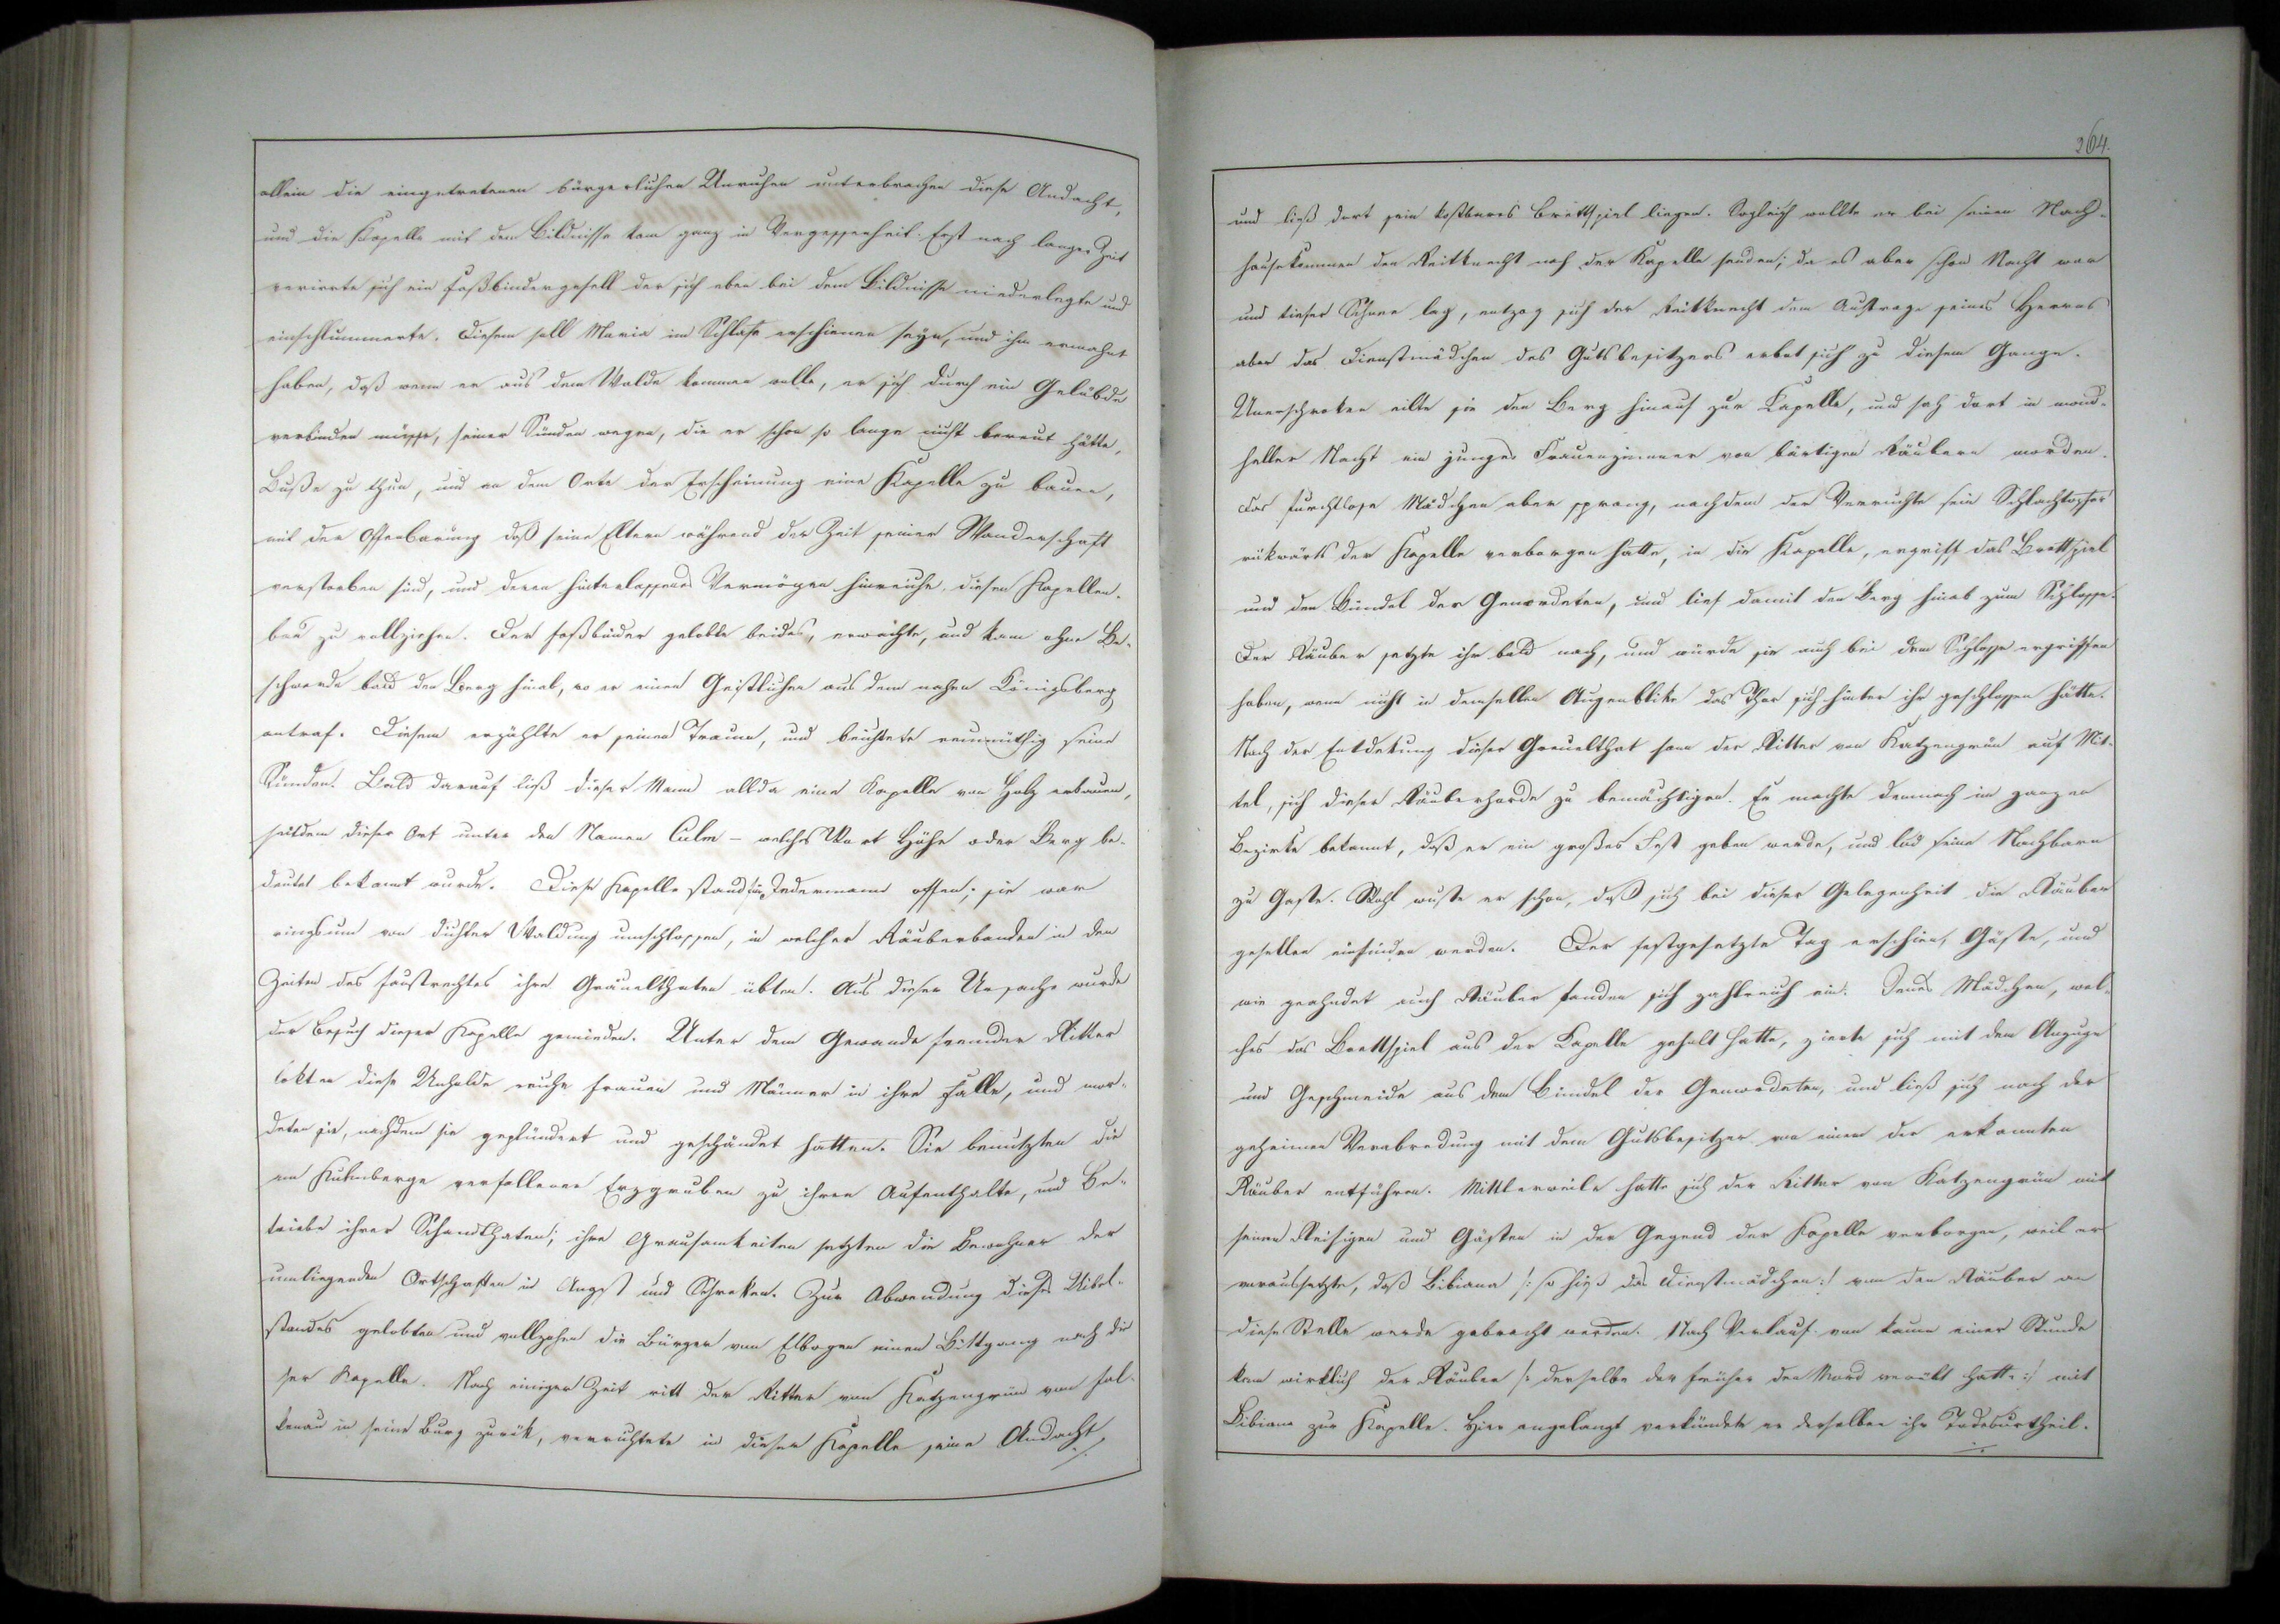 allein die eingetretenen bürgerlichen Unruhen unterbrachen diese Andacht,
und die Kapelle mit dem Bildnisse kam ganz in Vergessenheit. Erst nach langer Zeit
verirrte sich ein Faßbindergesell der sich eben bei dem Bildnisse niederlegte und
einschlummerte. Diesem soll Maria im Schlafe erschienen seyn, und ihn ermahnt
haben, daß wenn er aus dem Walde kommen wolle, er sich durch ein Gelübde
verbinden müsse, seiner Sünden wegen, die er schon so lange nicht bereut hätte,
Buße zu thun, und an dem Orte der Erscheinung eine Kapelle zu bauen,
mit der Offenbarung daß seine Eltern während der Zeit seiner Wanderschaft
verstorben sind, und deren hinterlassenes Vermögen hinreiche, diesen Kapellen-
bau zu vollziehen. Der Faßbinder gelobte beides, erwachte, und kam ohne Be-
schwerde bald den Berg hinab, wo er einen Geistlichen aus dem nahen Königsberg
antraf. Diesem erzählte er seinen Traum, und beichtete reumüthig seine
Sünden. Bald darauf ließ dieser Mann allda eine Kapelle von Holz erbauen,
seitdem dieser Ort unter den Namen Culm - welches Wort Höhe oder Berg be-
deutet bekannt wurde. Diese Kapelle stand für Jedermann offen; sie war
ringsum von dichter Waldung umschlossen, in welcher Räuberbanden in den
Zeiten des Faustrechtes ihre Gräuelthaten übten. Aus dieser Ursache wurde
der Besuch dieser Kapelle gemieden. Unter dem Gewande fremder Ritter
lokten diese Unholde reiche Frauen und Männer in ihre Falle, und mor-
deten sie, nachdem sie geplündert und geschändet hatten. Sie benützten die
am Kulmberge verfallenen Erzgruben zu ihren Aufenthalte, und Be-
triebe ihrer Schandthaten; ihre Grausamkeiten setzten die Bewohner der
umliegenden Ortschaften in Angst und Schreken. Zur Abwendung dieses Uibel-
standes gelobten und vollzohen die Bürger von Elbogen einen Bittgang nach die
ser Kapelle. Nach einiger Zeit ritt der Ritter von Katzengrün von Fal-
kenau in seine Burg zurük, verrichtete in dieser Kapelle seine Andacht,
./.
264.
und ließ dort sein kostbares Brettspiel liegen. Sogleich wollte er bei seinem Nach-
hausekommen den Reitknecht nach der Kapelle senden; da es aber schon Nacht war
und tiefer Schnee lag, entzog sich der Reitknecht dem Auftrage seines Herrns
aber das Dienstmädchen des Gutsbesitzers erbot sich zu diesem Gange.
Unerschroken eilte sie den Berg hinauf zur Kapelle, und sah dort in mond-
heller Nacht ein junges Frauenzimmer von bärtigen Räubern morden.
Das furchtlose Mädchen aber sprang, nachdem der Verruchte sein Schlachtopfer
rükwärts der Kapelle verborgen hatte, in die Kapelle, ergriff das Brettspiel
und den Bündel der Gemordeten, und lief damit den Berg hinab zum Schlosse.
Der Räuber setzte ihr bald nach, und würde sie auch bei dem Schlosse ergriffen
haben, wenn nicht in demselben Augenblike das Thor sich hinter ihr geschlossen hätte.
Nach der Entdekung dieser Greuelthat sann der Ritter von Katzengrün auf Mit-
tel, sich dieser Räuberhorde zu bemächtigen. Er machte demnach im ganzen
Bezirke bekannt, daß er ein großes Fest geben werde, und lud seine Nachbarn
zu Gaste. Wohl wuste er schon, daß sich bei dieser Gelegenheit die Räuber
gesellen einfinden werden. Der festgesetzte Tag erschien, Gäste, und
wie geahndet auch Räuber fanden sich zahlreich ein. Jenes Mädchen, wel-
ches das Brettspiel aus der Kapelle geholt hatte, zierte sich mit dem Anzuge
und Geschmeide aus dem Bündel der Gemordeten, und ließ sich nach der
geheimen Verabredung mit dem Gutsbesitzer von einem der erkannten
Räuber entführen. Mittlerweile hatte sich der Ritter von Katzengrün mit
seinen Reisigen und Gästen in der Gegend der Kapelle verborgen, weil er
voraussetzte, daß Bibiana /: so hieß das Dienstmädchen :/ von den Räuber an
diese Stelle werde gebracht werden. Nach Verlauf von kaum einer Stunde
kam wirklich der Räuber /: derselbe der früher den Mord verübt hatte :/ mit
Bibiana zur Kapelle. Hier angelangt verkündete er derselben ihr Todesurtheil.
./.